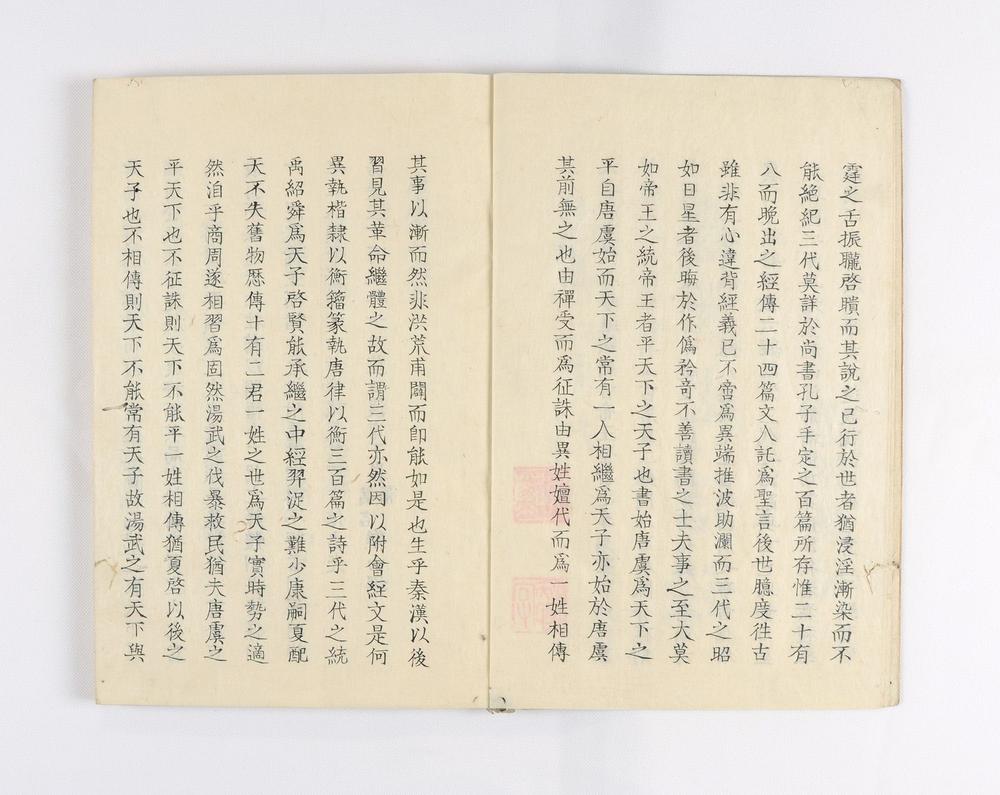 霆之舌振聾啓聵而其說之已行於世者猶浸淫漸染而不
能絕紀三代莫詳於尚書孔子手定之百篇所存惟二十有
八而晚出之經傳二十四篇文人託爲聖言後世臆度往古
雖非有心違背經義已不啻爲異端推波助瀾而三代之昭
如日星者後晦於作僞衿奇不善讀書之士夫事之至大莫
如帝王之統帝王者平天下之天子也書始唐虞爲天下之
平自唐虞始而天下之常有一人相繼爲天子亦始於唐虞
其前無之也由禪受而爲征誅由異姓嬗代而爲一姓相傳
其事以漸而然非洪荒甫闢而卽能如是也生乎秦漢以後
習見其革命繼體之故而謂三代亦然因以附會經文是何
異執楷隸以衡籀篆執唐律以衡三百篇之詩乎三代之統
禹紹舜爲天子啓賢能承繼之中經羿浞之難少康嗣夏配
天不失舊物歷傳十有二君一姓之世爲天子實時勢之適
然洎乎商周遂相習爲固然湯武之伐暴救民猶夫唐虞之
平天下也不征誅則天下不能平一姓相傳猶夏啓以後之
天子也不相傳則天下不能常有天子故湯武之有天下與